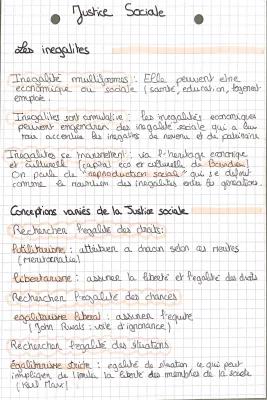 Justice Sociale
Les inegalités
Inegalité multiformes : Elle peuvent etre
economique ou sociale (santé, education, logement
emploie.
Inegalités sont cumulative : les inegalités economiques
peuvent engendrer des inegalité sociale qui a leur
tour accentue les inegalités de revenu et du patrimoine
Inegalites se transmettent : via l'heritage economique
et culturelle (capital eco et culturelle de Bourdieu)
On parle de "reproduction sociale" qui se definit
comme le maintien des inegalites entre les generations.
Conceptions variés de la Justice sociale
Rechercher l'egalité des droits:
Utilitarisme : attribuer a chacun selon ses merites
(meritocratie)
Libertarisme : assurer la liberté et l'egalité des droits
Rechercher l'egalité des chances
egalitarisme liberal : assurer l'equité
(John Rwals : voile d'ignorance)
Rechercher l'egalité des situations
Égalitarisme stricte : egalité de situation ce qui peut
impliquer de limiter la liberté des membres de la societe
(Karl Marx)